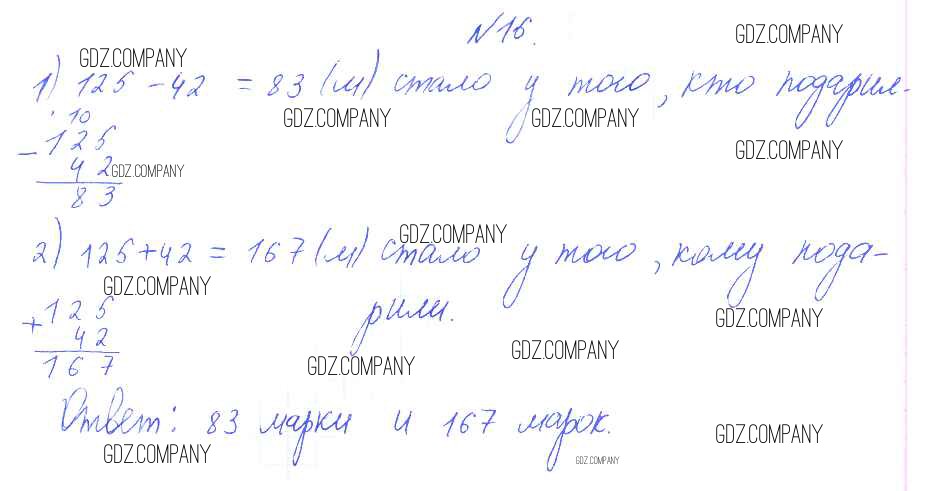 №16.
GDZ.COMPANY
GDZ.COMPANY
1) 125 - 42 = 83 (м) стало у того, кто подарил.
GDZ.COMPANY GDZ.COMPANY
· 10
- 125
42
83
GDZ.COMPANY
GDZ.COMPANY
GDZ.COMPANY
2) 125 + 42 = 167 (м) стало у того, кому пода-
рили.
GDZ.COMPANY
+ 125
42
167
GDZ.COMPANY
GDZ.COMPANY
GDZ.COMPANY
Ответ: 83 марки и 167 марок.
GDZ.COMPANY
GDZ.COMPANY
GDZ.COMPANY